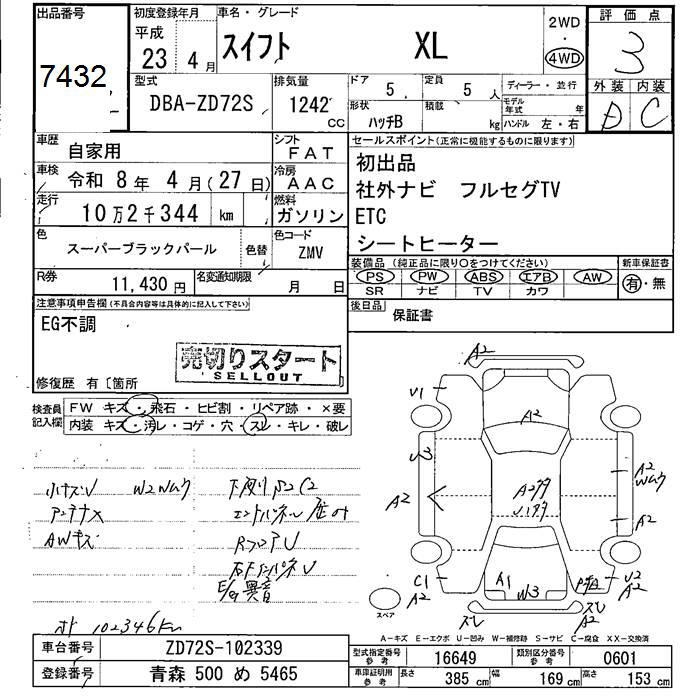 出品番号 初度登録年月 車名・グレード 2WD 4WD 評価点
7432 平成 23年 4月 スイフト XL 3
型式 DBA-ZD72S 排気量 1242 CC
ドア 5 定員 5人 ディーラー・並行
形状 ハッチB 積載 kg モデル年式 年 ハンドル 左・右
外装 内装
D C
車歴 自家用 シフト FAT
車検 令和 8年 4月(27日) 冷房 AAC
走行 10万2千344 km 燃料 ガソリン
色 スーパーブラックパール 色替 色コード ZMV
R券 11,430円 名変通知期限 月 日
セールスポイント(正常に機能するものに限ります)
初出品
社外ナビ フルセグTV
ETC
シートヒーター
装備品 (純正品に限り〇をつけてください) 新車保証書
PS PW ABS エアB AW 有・無
SR ナビ TV カワ
後日品 保証書
注意事項申告欄(不具合内容等は具体的に記入して下さい)
EG不調
売切りスタート
SELLOUT
修復歴 有〔箇所
検査員記入欄 FW キズ・飛石・ヒビ割・リペア跡・×要
内装 キズ・汚レ・コゲ・穴・スレ・キレ・破レ
小キズV W2Wムラ 下廻りS2C2
アンテナX
AWキズ RフロアV
E/g異音
102346Km
A2
V1
A2
V3
A2
A2
Wムラ
A2
C1
A2
A1
W3
V2
A2
スレ
スレ
A2
スペア
A−キズ E−エクボ U−凹み W−補修跡 S−サビ C−腐食 XX−交換済
車台番号 ZD72S-102339 型式指定番号 参考 16649 類別区分番号 参考 0601
登録番号 青森 500 め 5465 車庫証明用 参考 長さ 385 cm 幅 169 cm 高さ 153 cm